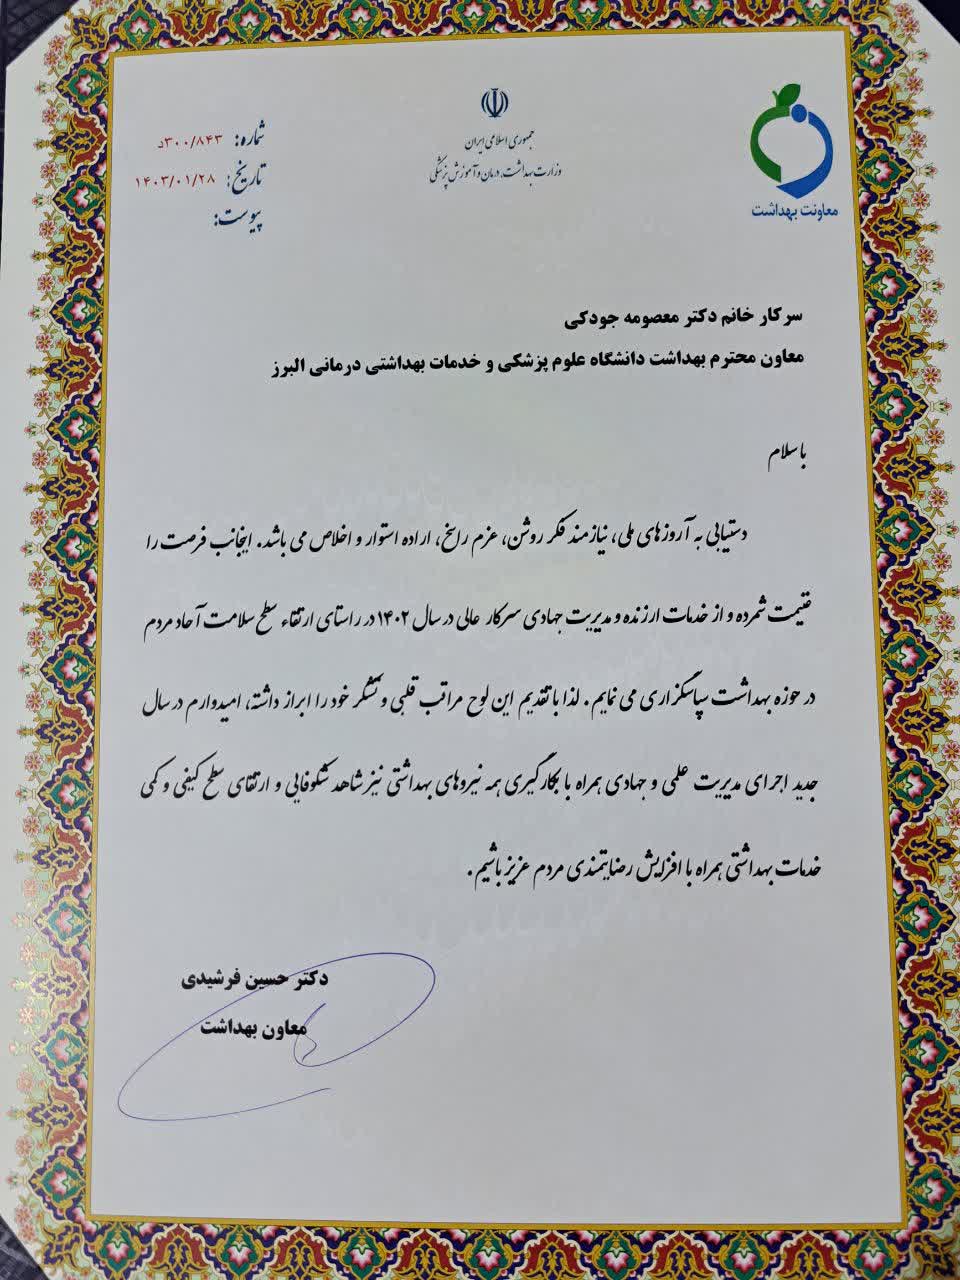 جمهوری اسلامی ایران
وزارت بهداشت، درمان و آموزش پزشکی
معاونت بهداشت
شماره: ۳۰۰/۸۴۳د
تاریخ: ۱۴۰۳/۰۱/۲۸
پیوست:
سرکار خانم دکتر معصومه جودکی
معاون محترم بهداشت دانشگاه علوم پزشکی و خدمات بهداشتی درمانی البرز
با سلام
دستیابی به آروزهای ملی، نیازمند فکر روشن، عزم راسخ، اراده استوار و اخلاص می باشد. اینجانب فرصت را
غنیمت شمرده و از خدمات ارزنده و مدیریت جهادی سرکار عالی در سال ۱۴۰۲ در راستای ارتقاء سطح سلامت آحاد مردم
در حوزه بهداشت سپاسگزاری می نمایم. لذا با تقدیم این لوح مراتب قلبی و تشکر خود را ابراز داشته، امیدوارم در سال
جدید اجرای مدیریت علمی و جهادی همراه با بکارگیری همه نیروهای بهداشتی نیز شاهد شکوفایی و ارتقای سطح کیفی و کمی
خدمات بهداشتی همراه با افزایش رضایتمندی مردم عزیز باشیم.
دکتر حسین فرشیدی
معاون بهداشت